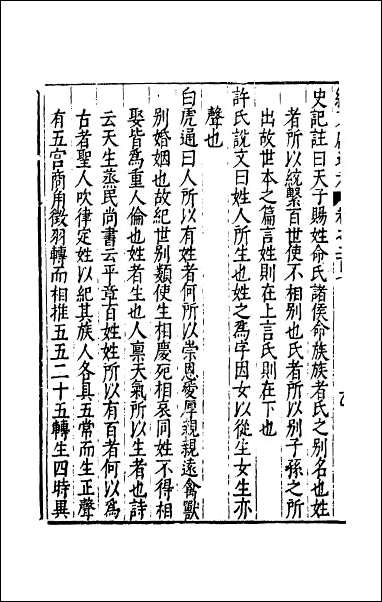 史記註曰天子賜姓命氏諸侯命族族者氏之別名也姓
者所以統繫百世使不相別也氏者所以別子孫之所
出故世本之篇言姓則在上言氏則在下也
許氏說文曰姓人所生也姓之為字因女以從生女生亦
聲也
白虎通曰人所以有姓者何所以崇恩愛厚親親遠禽獸
別婚姻也故紀世別類使生相慶死相哀同姓不得相
娶皆爲重人倫也姓者生也人稟天氣所以生者也詩
云天生蒸民尚書云平章百姓姓所以有百者何以爲
古者聖人吹律定姓以紀其族人各具五常而生正聲
有五宫商角徵羽轉而相推五五二十五轉生四時異